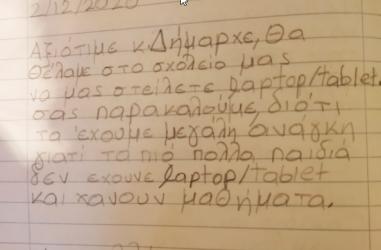 2/12/2020
Αξιότιμε κ.Δήμαρχε, Θα
θέλαμε στο σχολείο μας
να μας στείλετε laptop/tablet.
σας παρακαλούμε, διότι
τα έχουμε μεγάλη ανάγκη
γιατί τα πιό πολλα παιδιά
δεν εχουνε laptop/tablet
και χανουν μαθήματα.